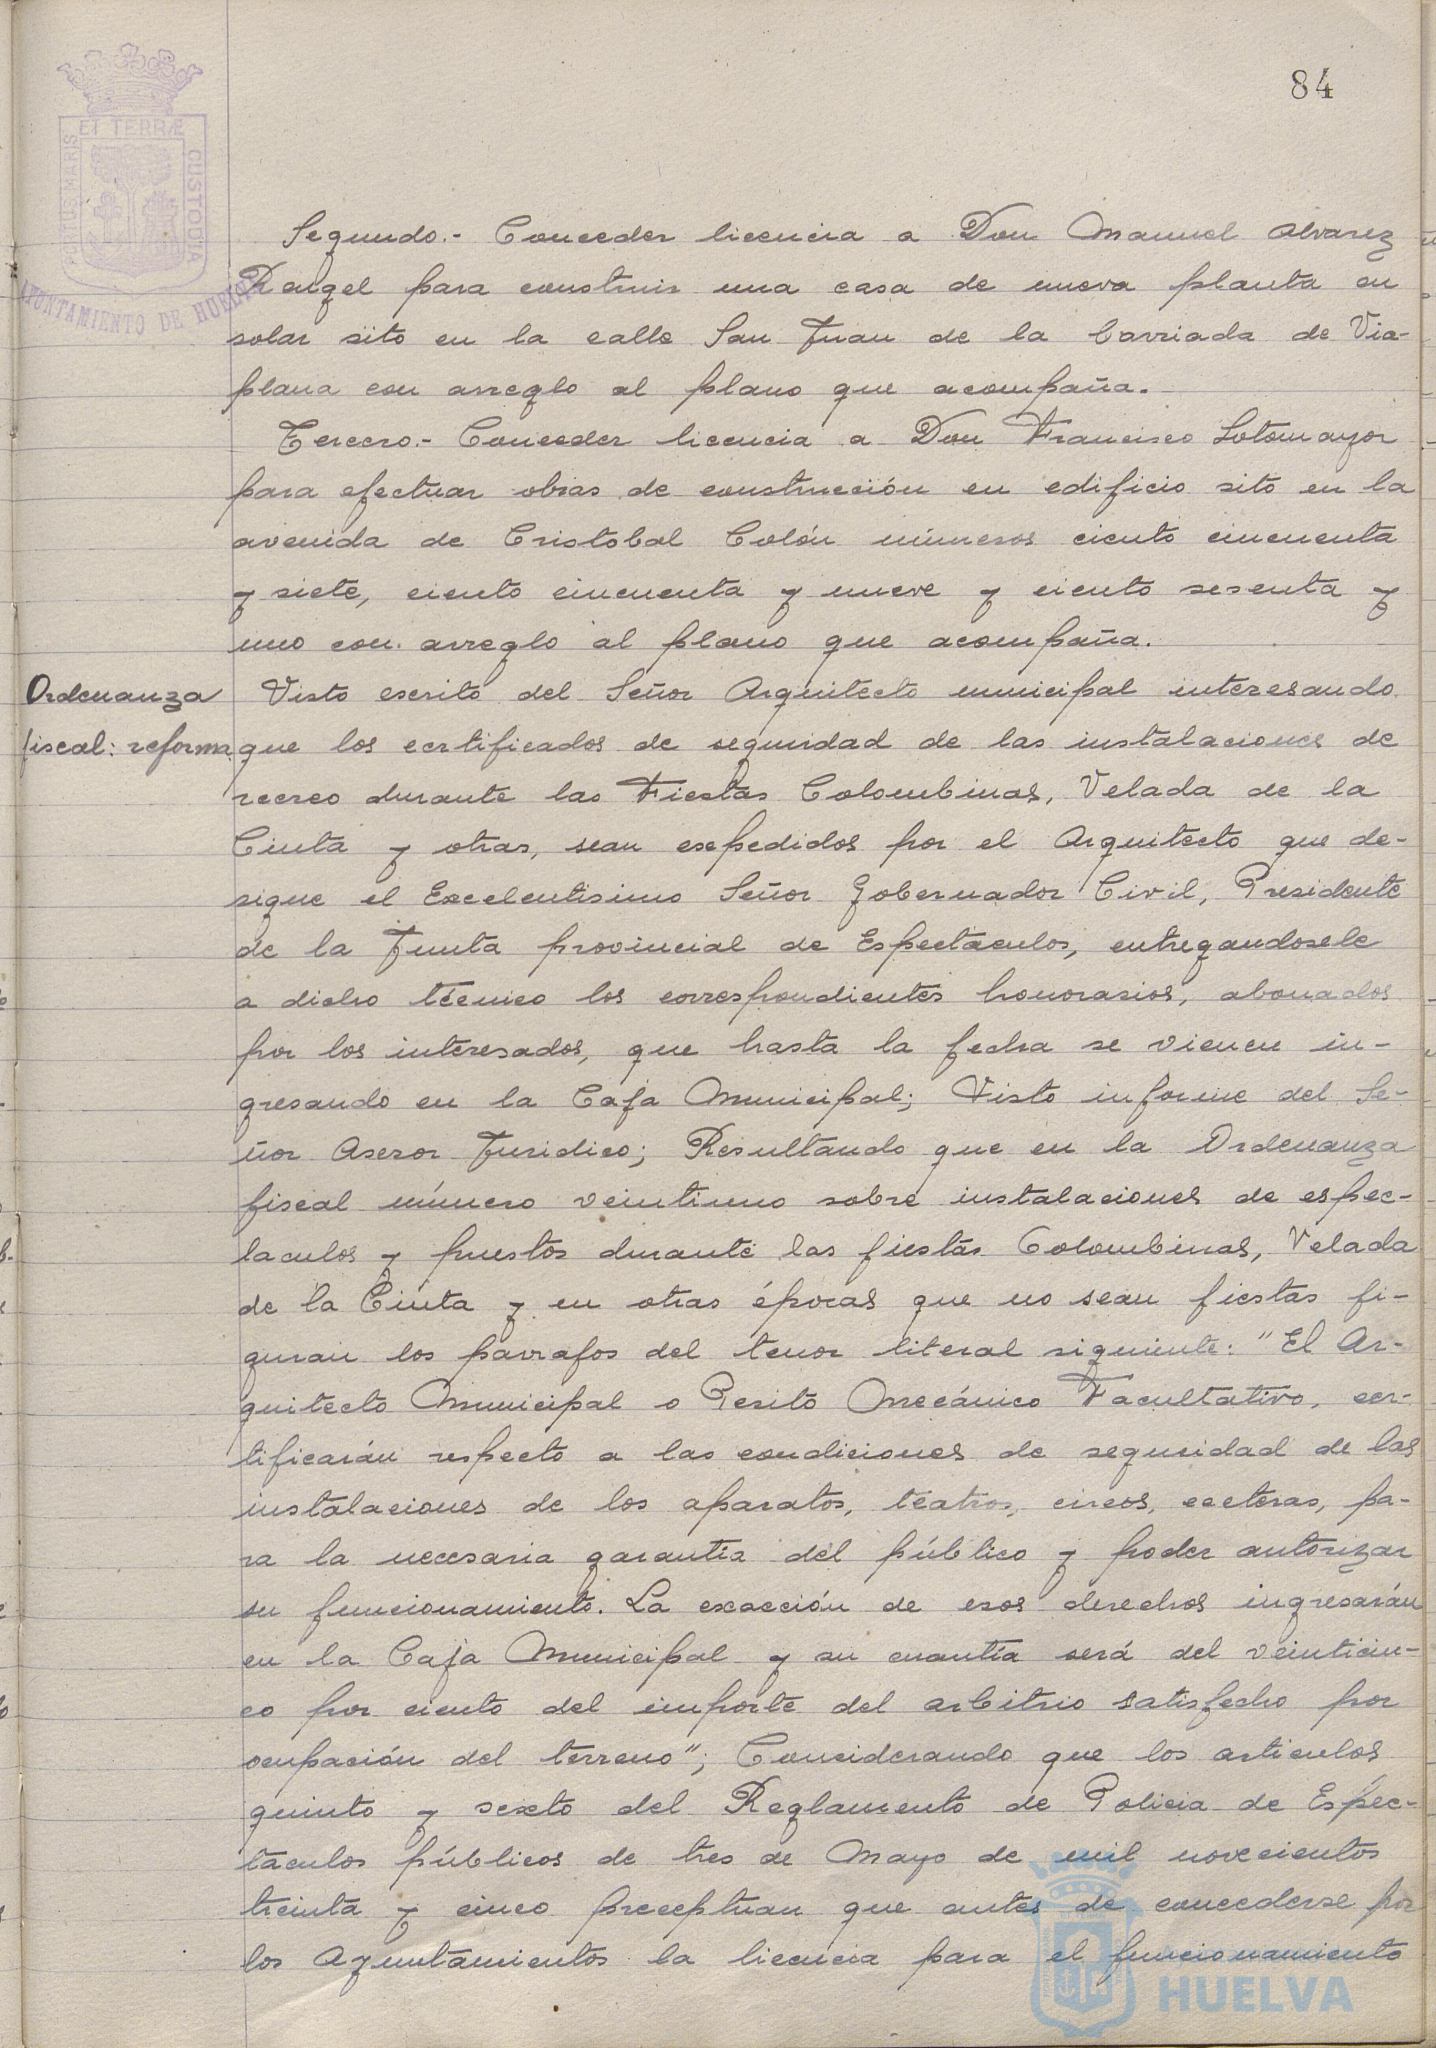 84
PORTUS MARIS
ET TERRÆ
CUSTODIA
AYUNTAMIENTO DE HUELVA
Segundo.- Conceder licencia a Don Manuel Alvarez
Rangel para construir una casa de nueva planta en
solar sito en la calle San Juan de la barriada de Via-
plana con arreglo al plano que acompaña.
Tercero.- Conceder licencia a Don Francisco Sotomayor
para efectuar obras de construcción en edificio sito en la
avenida de Cristobal Colón números ciento cincuenta
y siete, ciento cincuenta y nueve y ciento sesenta y
uno con arreglo al plano que acompaña.
Ordenanza
fiscal: reforma.
Visto escrito del Señor Arquitecto municipal interesando
que los certificados de seguridad de las instalaciones de
recreo durante las Fiestas Colombinas, Velada de la
Cinta y otras, sean expedidos por el Arquitecto que de-
signe el Excelentisimo Señor Gobernador Civil, Presidente
de la Junta provincial de Espectaculos, entregandosele
a dicho técnico los correspondientes honorarios, abonados
por los interesados, que hasta la fecha se vienen in-
gresando en la Caja Municipal; Visto informe del Se-
ñor Asesor Juridico; Resultando que en la Ordenanza
fiscal número veintiuno sobre instalaciones de espec-
taculos y puestos durante las fiestas Colombinas, Velada
de la Cinta y en otras épocas que no sean fiestas fi-
guran los parrafos del tenor literal siguiente: "El Ar-
quitecto Municipal o Perito Mecánico Facultativo, cer-
tificarán respecto a las condiciones de seguridad de las
instalaciones de los aparatos, teatros, circos, ecetera, pa-
ra la necesaria garantia del público y poder autorizar
su funcionamiento. La exacción de esos derechos ingresarán
en la Caja Municipal y su cuantía será del veinticin-
co por ciento del importe del arbitrio satisfecho por
ocupación del terreno"; Considerando que los articulos
quinto y sexto del Reglamento de Policia de Espec-
taculos públicos de tres de Mayo de mil novecientos
treinta y cinco preceptuan que antes de concederse por
los Ayuntamientos la licencia para el funcionamiento
HUELVA